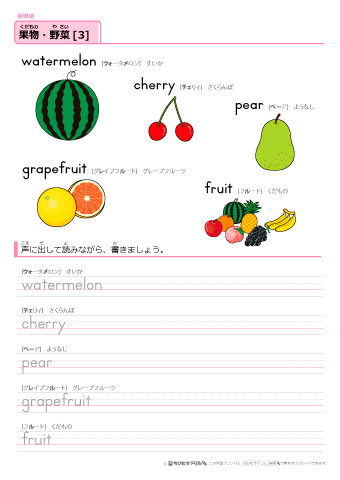 英単語
果物・野菜 [3]
watermelon [ウォータメロン] すいか
cherry [チェリィ] さくらんぼ
pear [ペーア] ようなし
grapefruit [グレイプフルート] グレープフルーツ
fruit [フルート] くだもの
声に出して読みながら、書きましょう。
[ウォータメロン] すいか
watermelon
[チェリィ] さくらんぼ
cherry
[ペーア] ようなし
pear
[グレイプフルート] グレープフルーツ
grapefruit
[フルート] くだもの
fruit